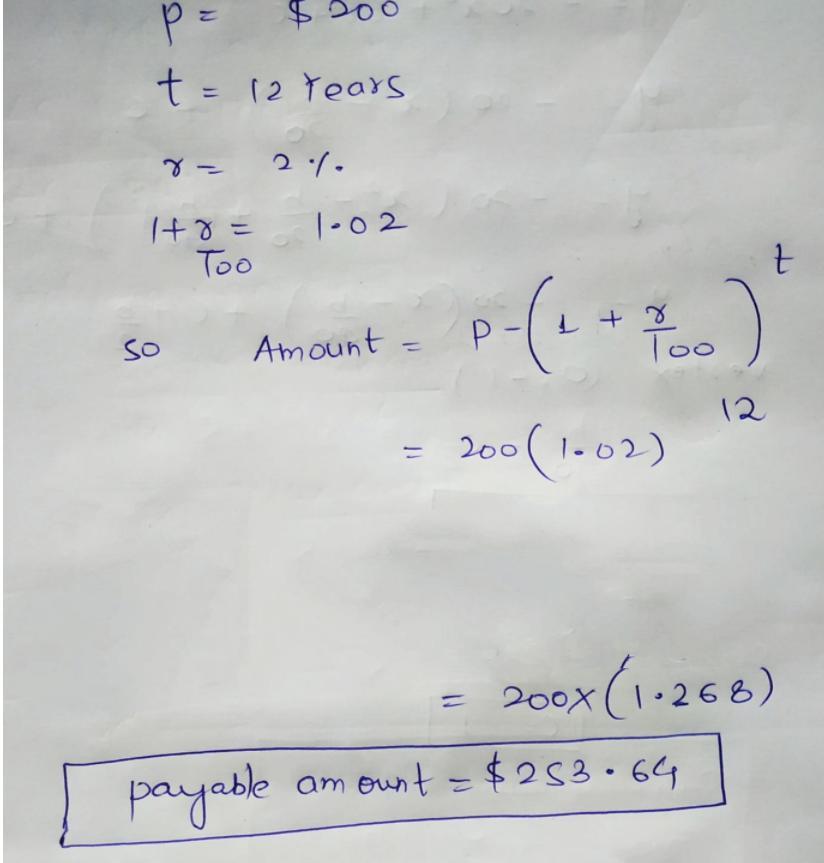 p = $200
t = 12 Years
r = 2%.
1+r/100 = 1.02
so Amount = P-(1 + r/100)^t
= 200(1.02)^12
= 200x(1.268)
payable amount = $253.64